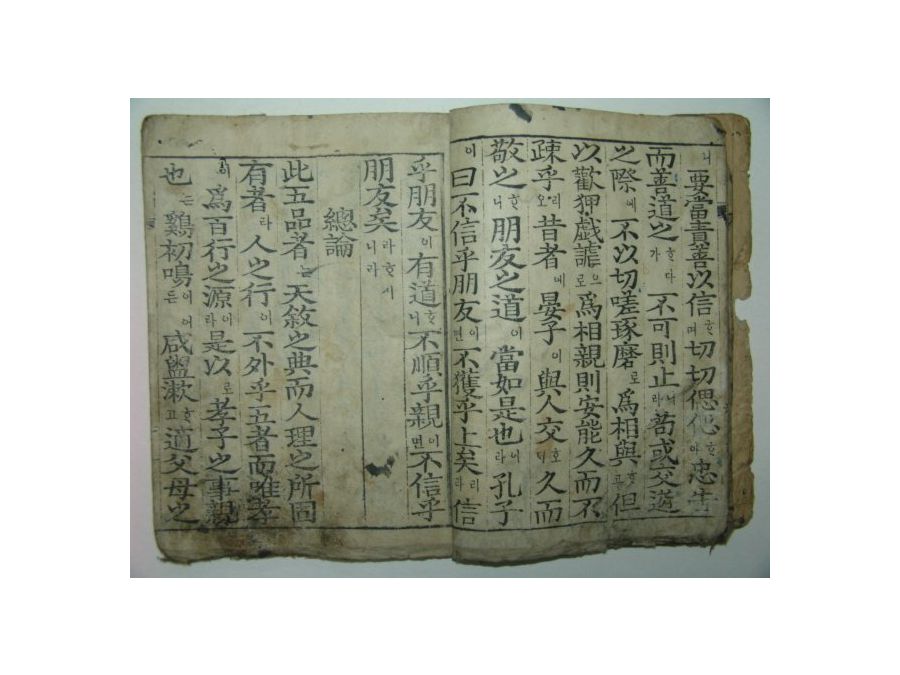 니 要當責善以信ᄒᆞ며 切切偲偲ᄒᆞ야 忠告
而善道之ᄒᆞ다가 不可則止니라 苟或交遊
之際에 不以切嗟琢磨로 爲相與ᄒᆞ고 但
以歡狎戱謔으로 爲相親則安能久而不
疎乎리오 昔者에 晏子이 與人交호ᄃᆡ 久而
敬之ᄒᆞ니 朋友之道이 當如是也니라 孔子
이 曰不信乎朋友이면 不獲乎上矣리라 信
乎朋友이 有道ᄒᆞ니 不順乎親이면 不信乎
朋友矣라ᄒᆞ시니라
總論
此五品者는 天敘之典而人理之所固
有者라 人之行이 不外乎五者而唯孝
이 爲百行之源이라 是以로 孝子之事親
也는 鷄初鳴이어든 咸盥漱ᄒᆞ고 適父母之